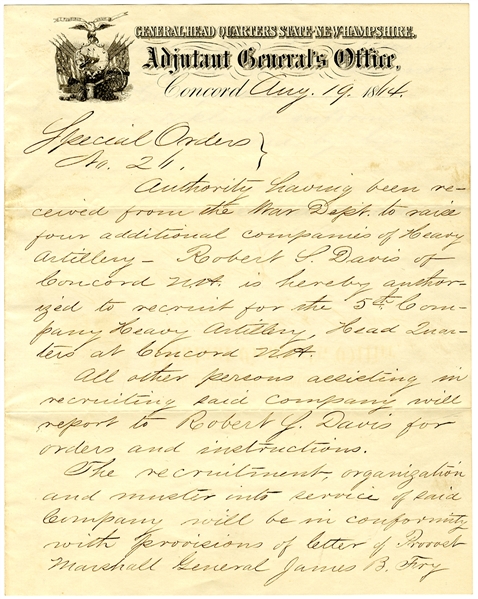 GENERAL HEAD QUARTERS STATE NEW-HAMPSHIRE.
Adjutant General's Office,
Concord Aug. 19. 1864.
Special Orders }
No. 26.
Authority having been re-
ceived from the War Dept. to raise
four additional companies of Heavy
Artillery – Robert S. Davis of
Concord N.H. is hereby author-
ized to recruit for the 5th Com-
pany Heavy Artillery, Head Quar-
ters at Concord N.H.
All other persons assisting in
recruiting said company will
report to Robert S. Davis for
orders and instructions.
The recruitment, organization
and muster into service of said
Company will be in conformity
with provisions of letter of Provost
Marshall General James B. Fry